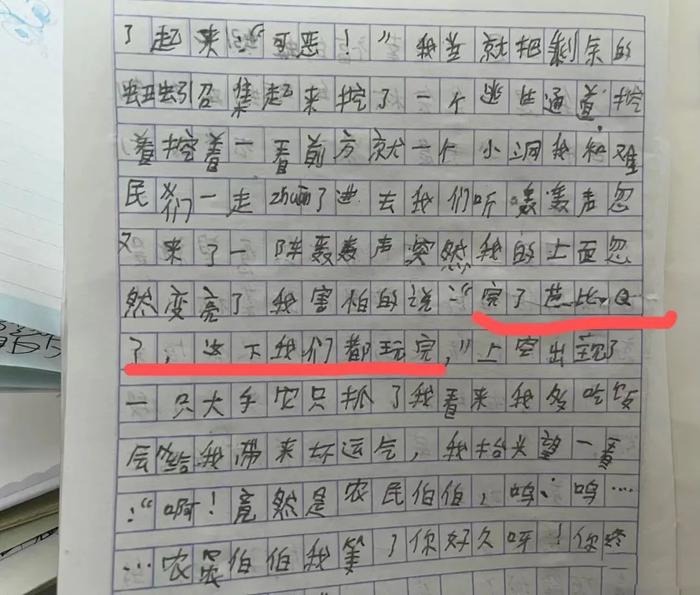 了起来："可恶！"我当就把剩余的
蚯蚓召集起来挖了一个逃生通道，挖
着挖着一看前方就一个小洞我和难
民们一走zhuan了进去我们听轰轰声忽
又来了一阵轰轰声突然我的上面忽
然变亮了我害怕的说："完了芭比Q
了，这下我们都玩完，"上空出现了
一只大手它只抓了我看来我多吃饭
会给我带来坏运气，我抬头望一看
："啊！竟然是农民伯伯，呜，呜…
…农民伯伯我等了你好久呀！你终